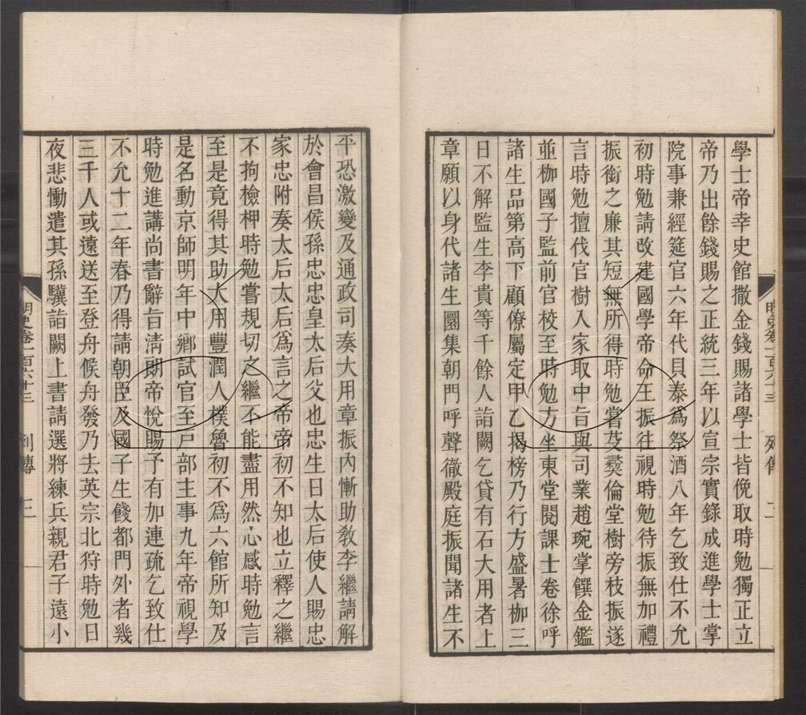 學士帝幸史館撒金錢賜諸學士皆俛取時勉獨正立
帝乃出餘錢賜之正統三年以宣宗實錄成進學士掌
院事兼經筵官六年代貝泰爲祭酒八年乞致仕不允
初時勉請改建國學帝命王振往視時勉待振無加禮
振銜之廉其短無所得時勉嘗芟彝倫堂樹旁枝振遂
言時勉擅伐官樹入家取中旨與司業趙琬掌饌金鑑
並枷國子監前官校至時勉方坐東堂閱課士卷徐呼
諸生品第高下顧僚屬定甲乙揭榜乃行方盛暑枷三
日不解監生李貴等千餘人詣闕乞貸有石大用者上
章願以身代諸生圜集朝門呼聲徹殿庭振聞諸生不
明史卷一百六十三 列傳 二
平恐激變及通政司奏大用章振內慚助敎李繼請解
於會昌侯孫忠忠皇太后父也忠生日太后使人賜忠
家忠附奏太后太后爲言之帝帝初不知也立釋之繼
不拘檢柙時勉嘗規切之繼不能盡用然心感時勉言
至是竟得其助大用豐潤人樸魯初不爲六館所知及
是名動京師明年中鄉試官至戸部主事九年帝視學
時勉進講尚書辭旨淸朗帝悅賜予有加連疏乞致仕
不允十二年春乃得請朝臣及國子生餞都門外者幾
三千人或遠送至登舟候舟發乃去英宗北狩時勉日
夜悲慟遣其孫驥詣闕上書請選將練兵親君子遠小
明史卷一百六十三 列傳 三